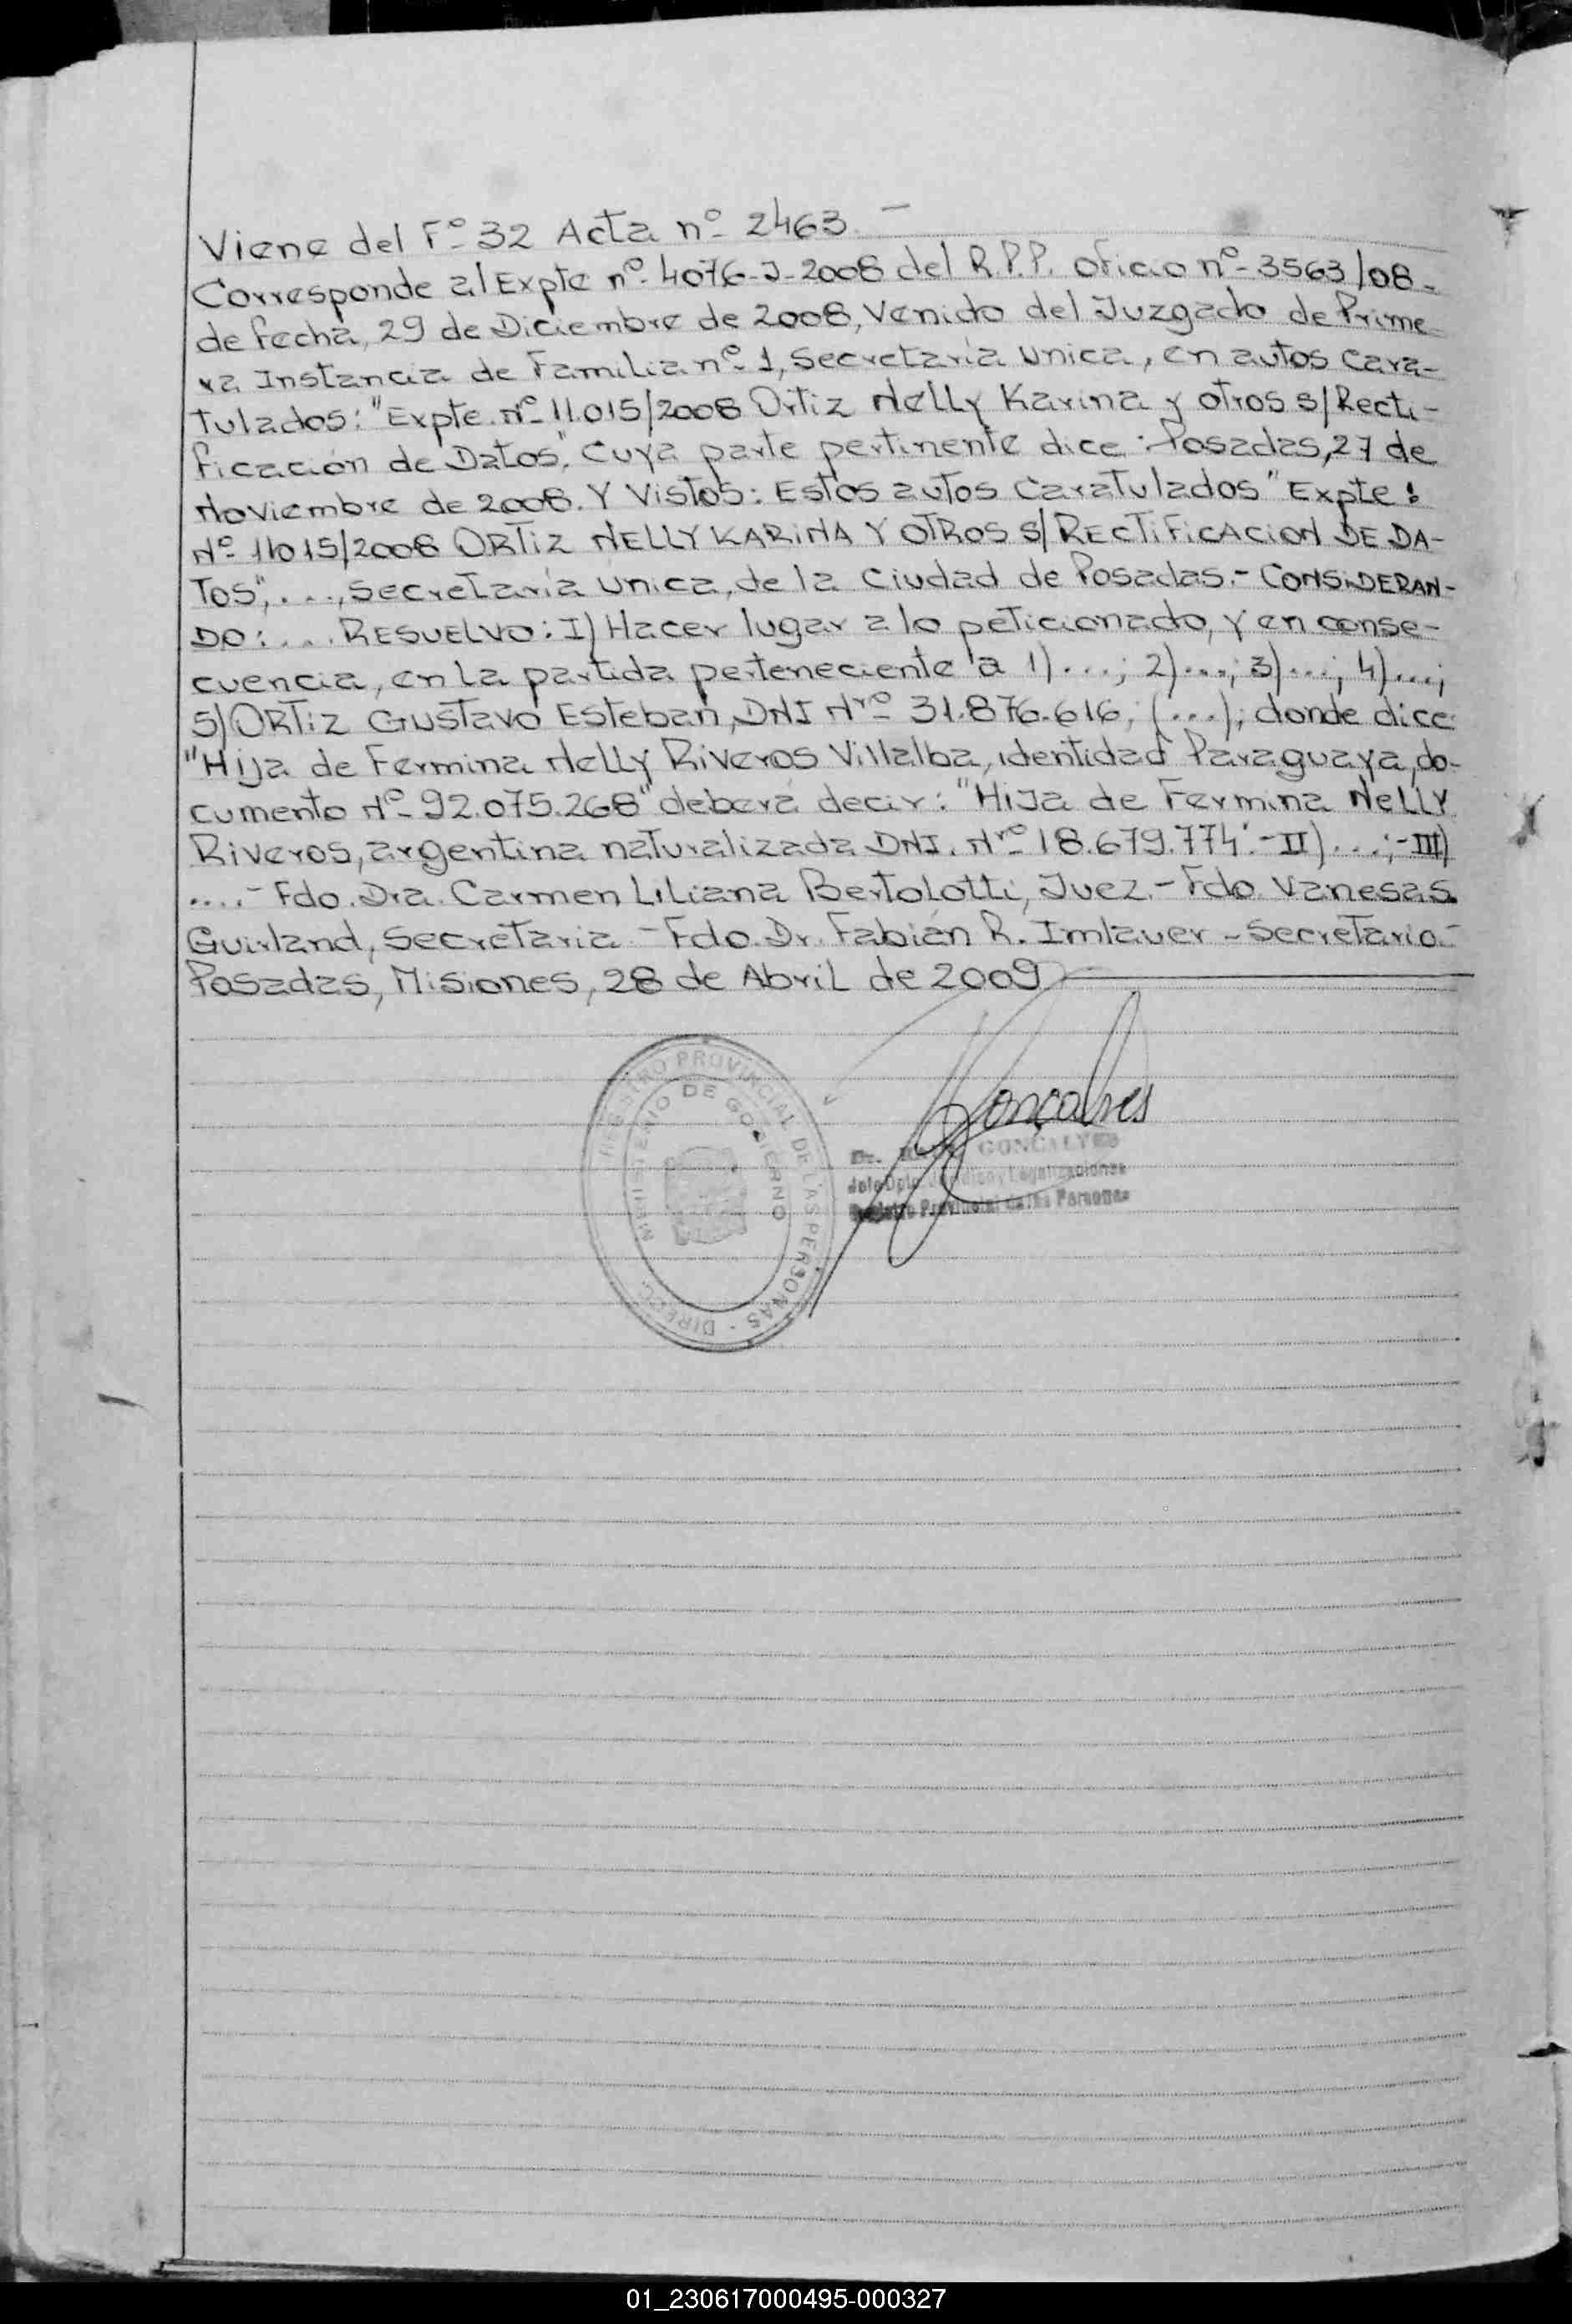 Viene del Fº 32 Acta nº 2463. —
Corresponde al Expte nº 4076-J-2008 del R.P.P. oficio nº 3563/08-
de fecha, 29 de Diciembre de 2008, Venido del Juzgado de Prime
ra Instancia de Familia nº 1, Secretaría Unica, en autos Cara-
Tulados: "Expte. Nº 11.015/2008 Ortiz Nelly Karina y otros s/Recti-
ficación de Datos". Cuya parte pertinente dice: Posadas, 27 de
Noviembre de 2008. Y Vistos: Estos autos Caratulados "Expte:
Nº 11015/2008 ORTIZ NELLY KARINA Y OTROS S/RECTIFICACION DE DA-
TOS", ..., Secretaría Unica, de la Ciudad de Posadas.- CONSIDERAN-
DO: ... RESUELVO: I) Hacer lugar a lo peticionado, y en conse-
cuencia, en La partida perteneciente a 1)...; 2)...; 3)...; 4)...;
5) ORTIZ GUSTAVO ESTEBAN, DNI Nrº 31.876.616, (...); donde dice:
"Hija de Fermina Nelly Riveros Villalba, identidad Paraguaya, do-
cumento Nº 92.075.268" deberá decir: "Hija de Fermina NELLY
Riveros, argentina naturalizada DNI. Nrº 18.679.774".- II) ...;- III)
....- Fdo. Dra. Carmen Liliana Bertolotti, Juez.- Fdo. Vanesa S.
Guirland, Secretaria - Fdo. Dr. Fabián R. Imlauer - Secretario.-
Posadas, Misiones, 28 de Abril de 2009
REGISTRO PROVINCIAL DE LAS PERSONAS - DIRECC
MINISTERIO DE GOBIERNO
Goncalves
Dr. GONCALVES
Jefe Dpto. Jurídico y Legalizaciones
Registro Provincial de las Personas
01_230617000495-000327